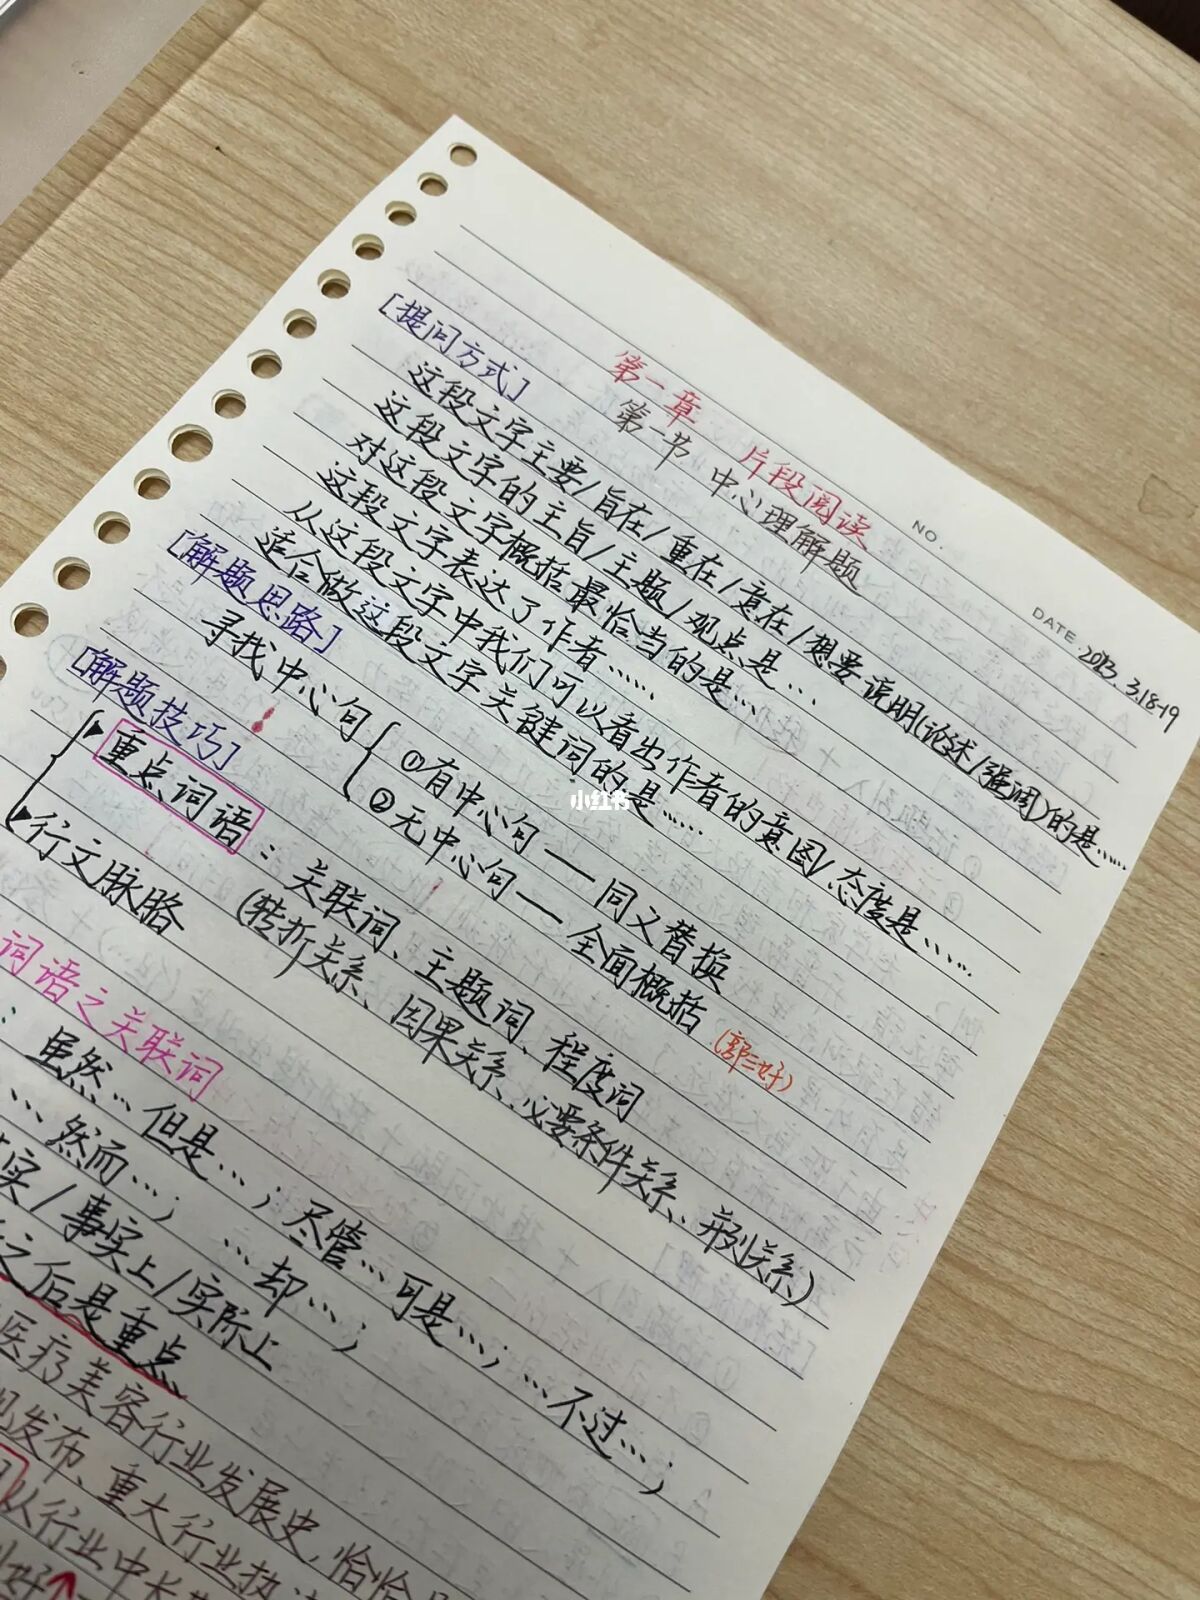 第一章 片段阅读
第一节 中心理解题
NO.
DATE. 2023. 3.18-19
[提问方式]
这段文字主要/旨在/重在/意在/想要说明(论述/强调)的是……
这段文字的主旨/主题/观点是…
对这段文字概括最恰当的是…
这段文字表达了作者……
从这段文字中我们可以看出作者的意图/态度是……
适合做这段文字关键词的是……
[解题思路]
寻找中心句
①有中心句——同义替换
②无中心句——全面概括(郭三好)
[解题技巧]
重点词语：关联词、主题词、程度词
(转折关系、因果关系、必要条件关系、并列关系)
行文脉络
词语之关联词
虽然…但是…；尽管…可是…；…不过…；
…然而…；…却…；
实/事实上/实际上
之后是重点
医疗美容行业发展史，恰恰
发布、重大行业执
从行业中长
小红书